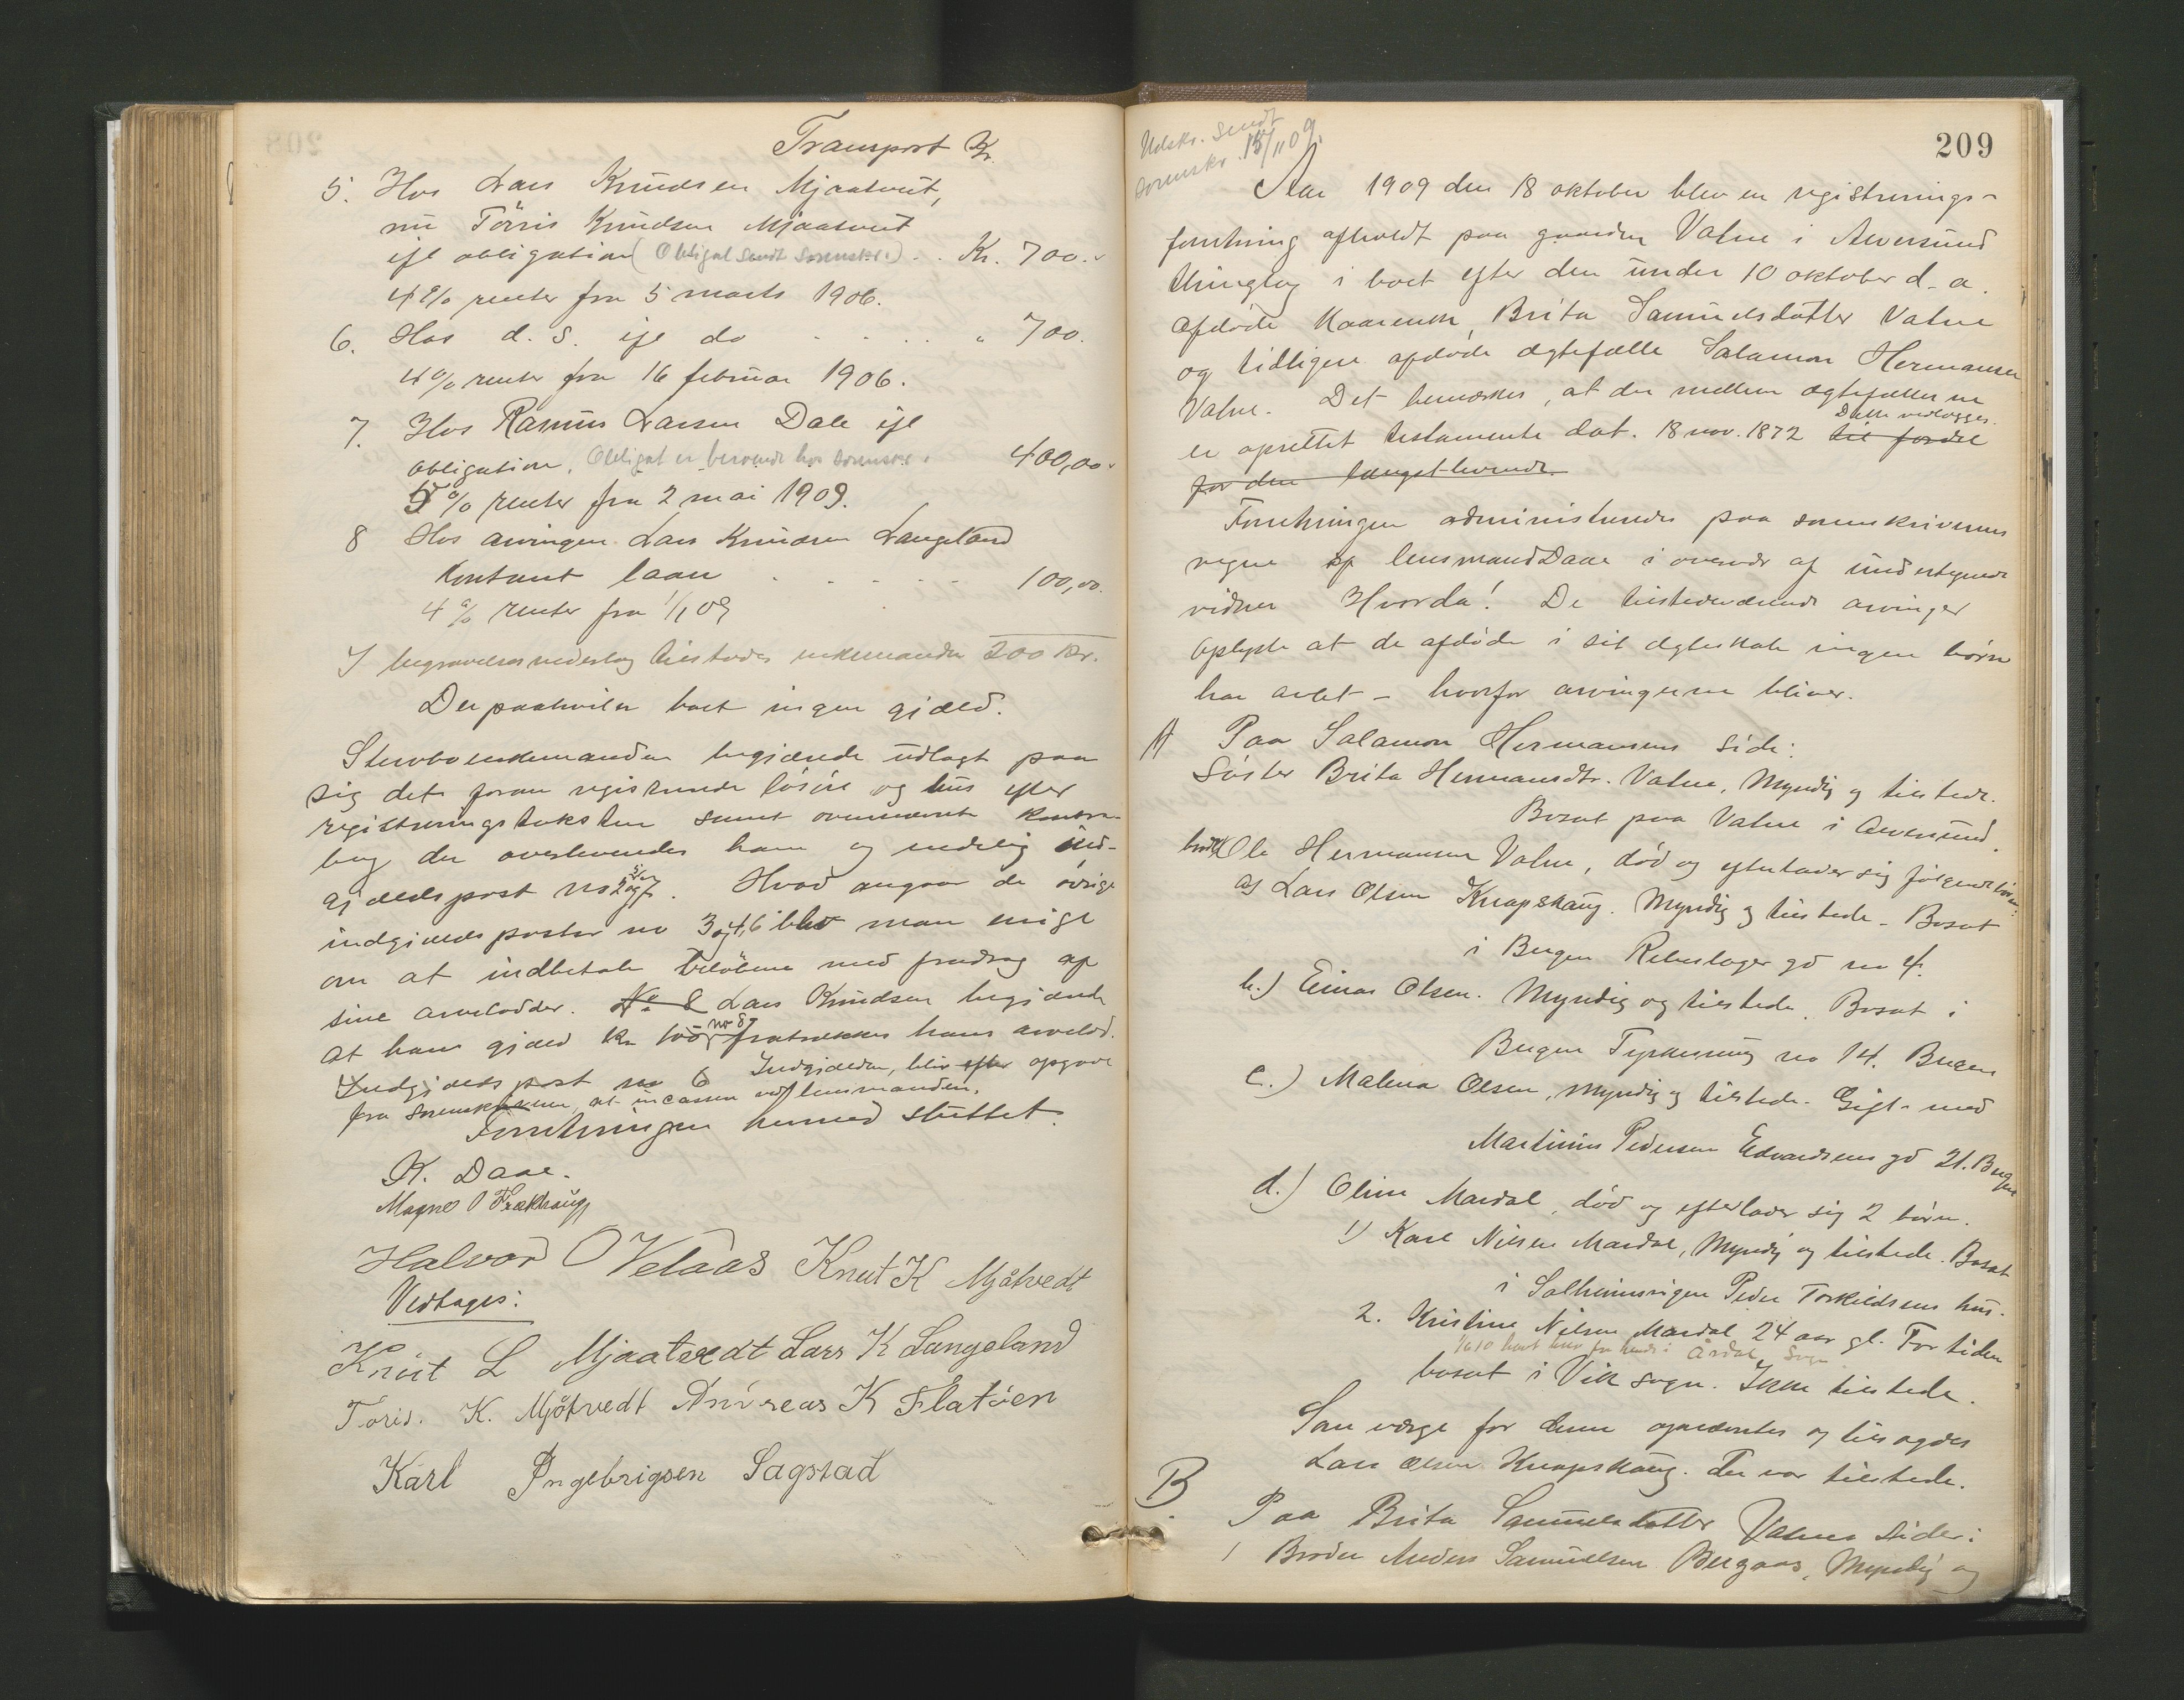 Transport Kr.
5. Hos Lars Knudsen Mjaatveit,
nu Törris Knudsen Mjaatveit
ifl obligation (Obligat sendt sorenskr.) . . Kr. 700.
4 % renter fra 5 marts 1906.
6. Hos d. s. ifl do . . . . " 700.
4 % renter fra 16 februar 1906.
7. Hos Rasmus Larsen Dale ifl
obligation. Obligat er beroende hos sorenskr. 400,00.
5 % renter fra 2 mai 1909.
8 Hos arvingen Lars Knudsen Langeland
Kontant laan . . . . . 100,00.
4 % renter fra 1/1 09
I begravelsesvederlag tilstodes enkemanden 200 kr.
Der paahviler boet ingen gjæld.
Stervboenkemanden begjærede udlagt paa
sig det foran registrerede lösöre og hus efter
registreringstaksten samt overnævnte
der overlevendes ham og endelig ind-
gjældspost no 2 og 7. Hvad angaar de övrige
indgjældsposter no 3 og 4, 6 blev man enige
om at indbetale belöbene med fradrag af
sine arvelodder. No 8 Lars Knudsen begjærede
at hans gjæld kr 100 no 8 fratrækkes hans arvelod.
Indgjældspost no 6 Indgjælden, blir efter opgave
fra sorenskriveren at incassere ved lensmanden.
Forretningen hermed sluttet.
K. Daae.
Magne O Frekhaug
Halvor O Velaas Knut K Mjåtvedt
Vedtages:
Knut L Mjaatvedt Lars K Langeland
Töris. K. Mjåtvedt Andreas K Flatöen
Karl Ingebrigsen Sagstad
209
Udskr. sendt
sorenskr. 15/11 09.
Aar 1909 den 18 oktober blev en registrerings-
forretning afholdt paa gaarden Vatne i Alversund
thinglag i boet efter den under 10 oktober d. a.
afdöde Kaarenke, Brita Samuelsdatter Vatne
og tidligere afdöde ægtefælle Salamon Hermansen
Vatne. Det bemærkes, at der mellem ægtefællerne
er oprettet testamente dat. 18 nov. 1872 til fordel Dette vedlægges.
for den længstlevende.
Forretningen administreredes paa sorenskriverens
vegne af lensmand Daae i overvær af undertegnede
vidner Hvorda! De tilstedeværende arvinger
oplyste at de afdöde i sit ægteskab ingen börn
har avlet – hvorfor arvingerne bliver.
A Paa Salamon Hermansens side:
Söster Brita Hermansdtr. Vatne, Myndig og tilstede.
Bosat paa Vatne i Alversund.
broder Ole Hermansen Vatne, död og efterlader sig fölgende börn:
a) Lars Olsen Knapskaug. Myndig og tilstede – Bosat
i Bergen Rebslager gd no 4.
b.) Einar Olsen. Myndig og tilstede. Bosat i
Bergen no 14. Bergen
c.) Malena Olsen, Myndig og tilstede. Gift med
Martinus Pedersen Edvardsens gd 21. Bergen
d.) Oline Mardal, död og efterlader sig 2 börn.
1) Karl Nilsen Mardal, Myndig og tilstede. Bosat
i Solheimsvigen Peder Torkildsens hus.
2. Kristine Nilsen Mardal 24 aar gl. For tiden
Årdal Sogn
bosat i Vik sogn. Ikke tilstede.
Som værge for denne opnævntes og tilsagdes
Lars Olsen Knapskaug. Der var tilstede.
B Paa Brita Samuelsdatter Vatnes side:
1 Broder Anders Samuelsen Bergaas, Myndig og